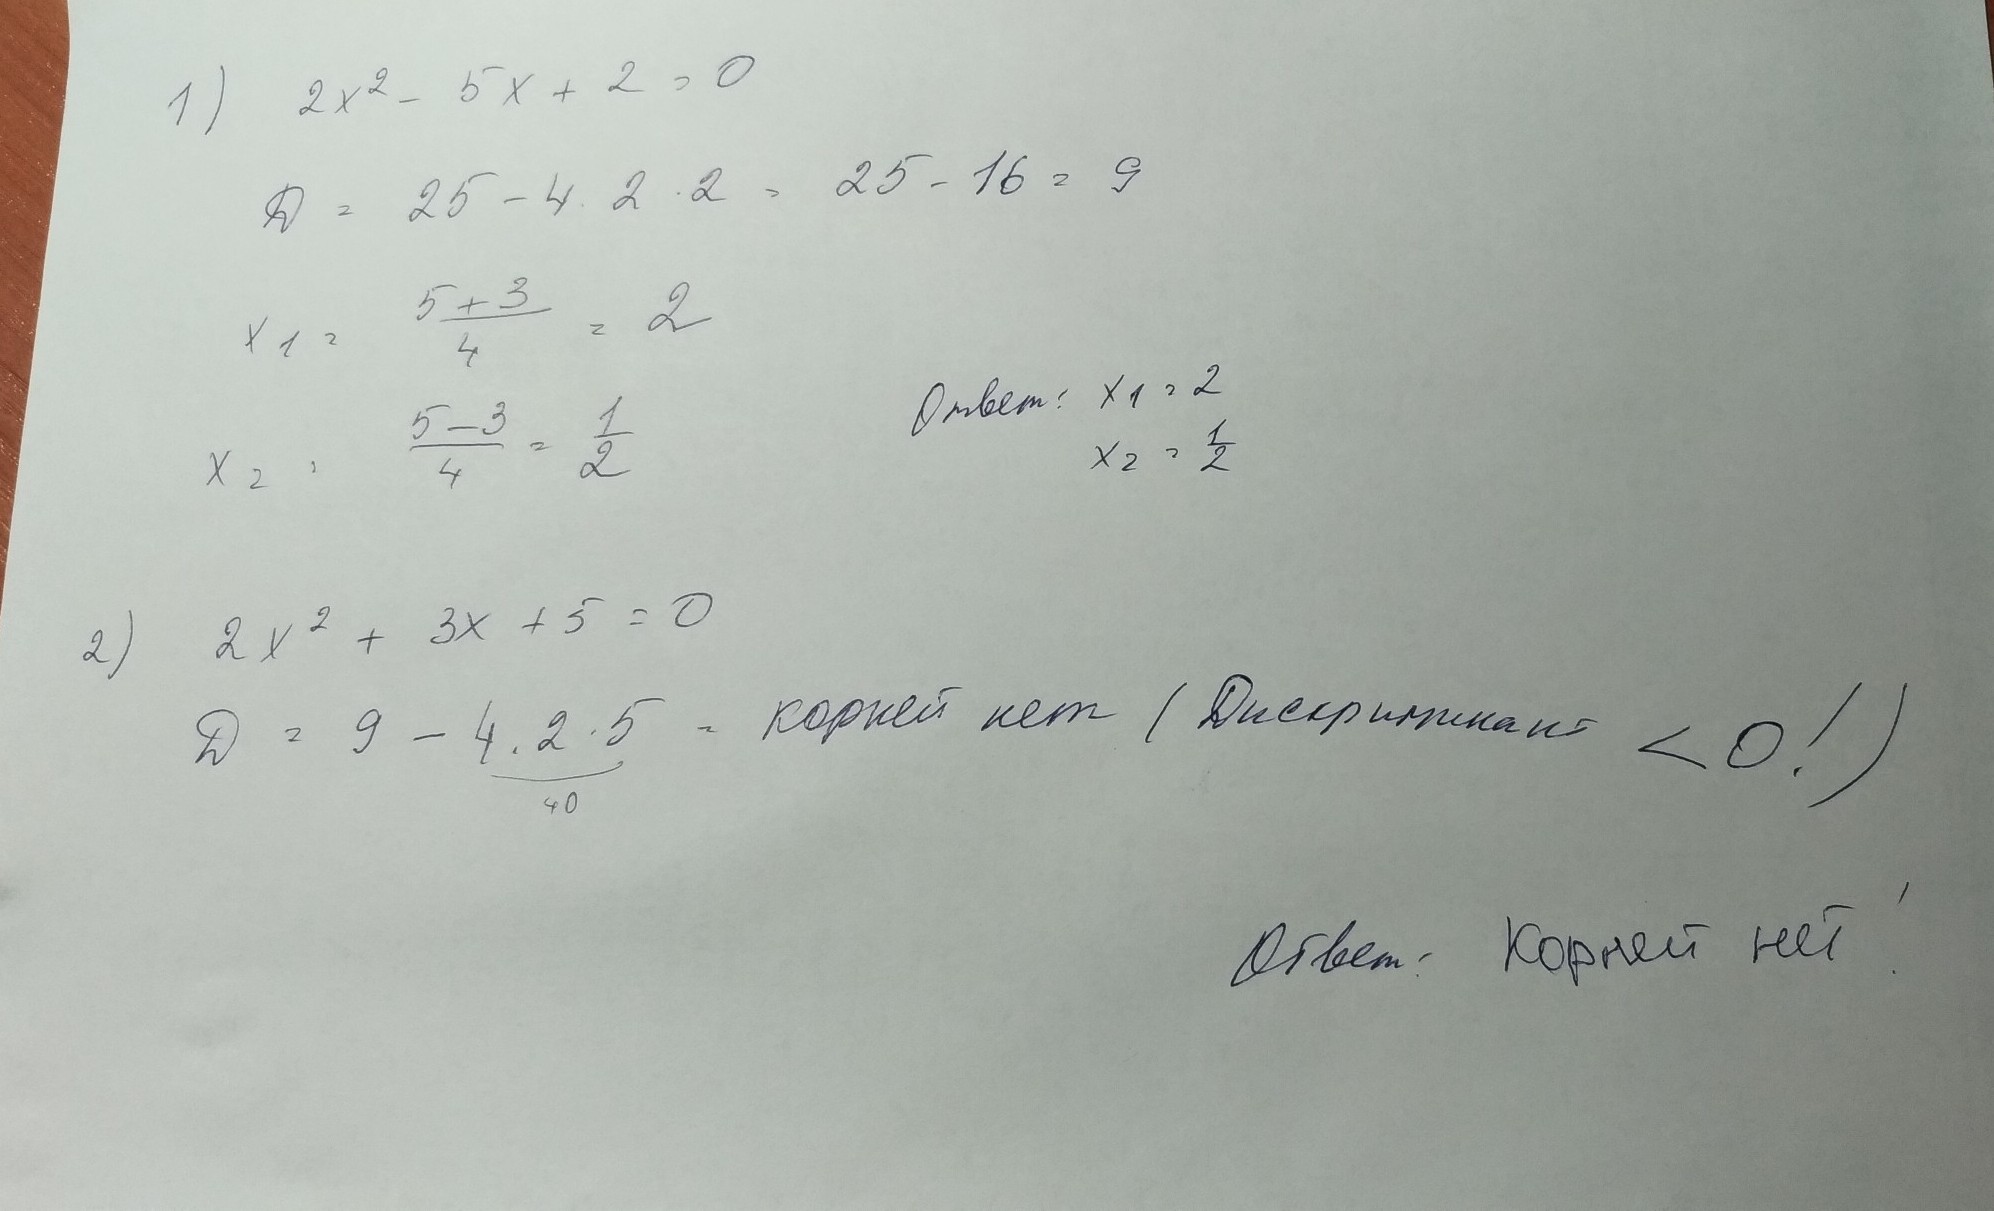 1) 2x² - 5x + 2 = 0
D = 25 - 4 · 2 · 2 = 25 - 16 = 9
x₁ = (5 + 3)/4 = 2
x₂ = (5 - 3)/4 = 1/2
Ответ: x₁ = 2
x₂ = 1/2
2) 2x² + 3x + 5 = 0
D = 9 - 4 · 2 · 5 = корней нет (Дискриминант < 0!)
40
Ответ: Корней нет!